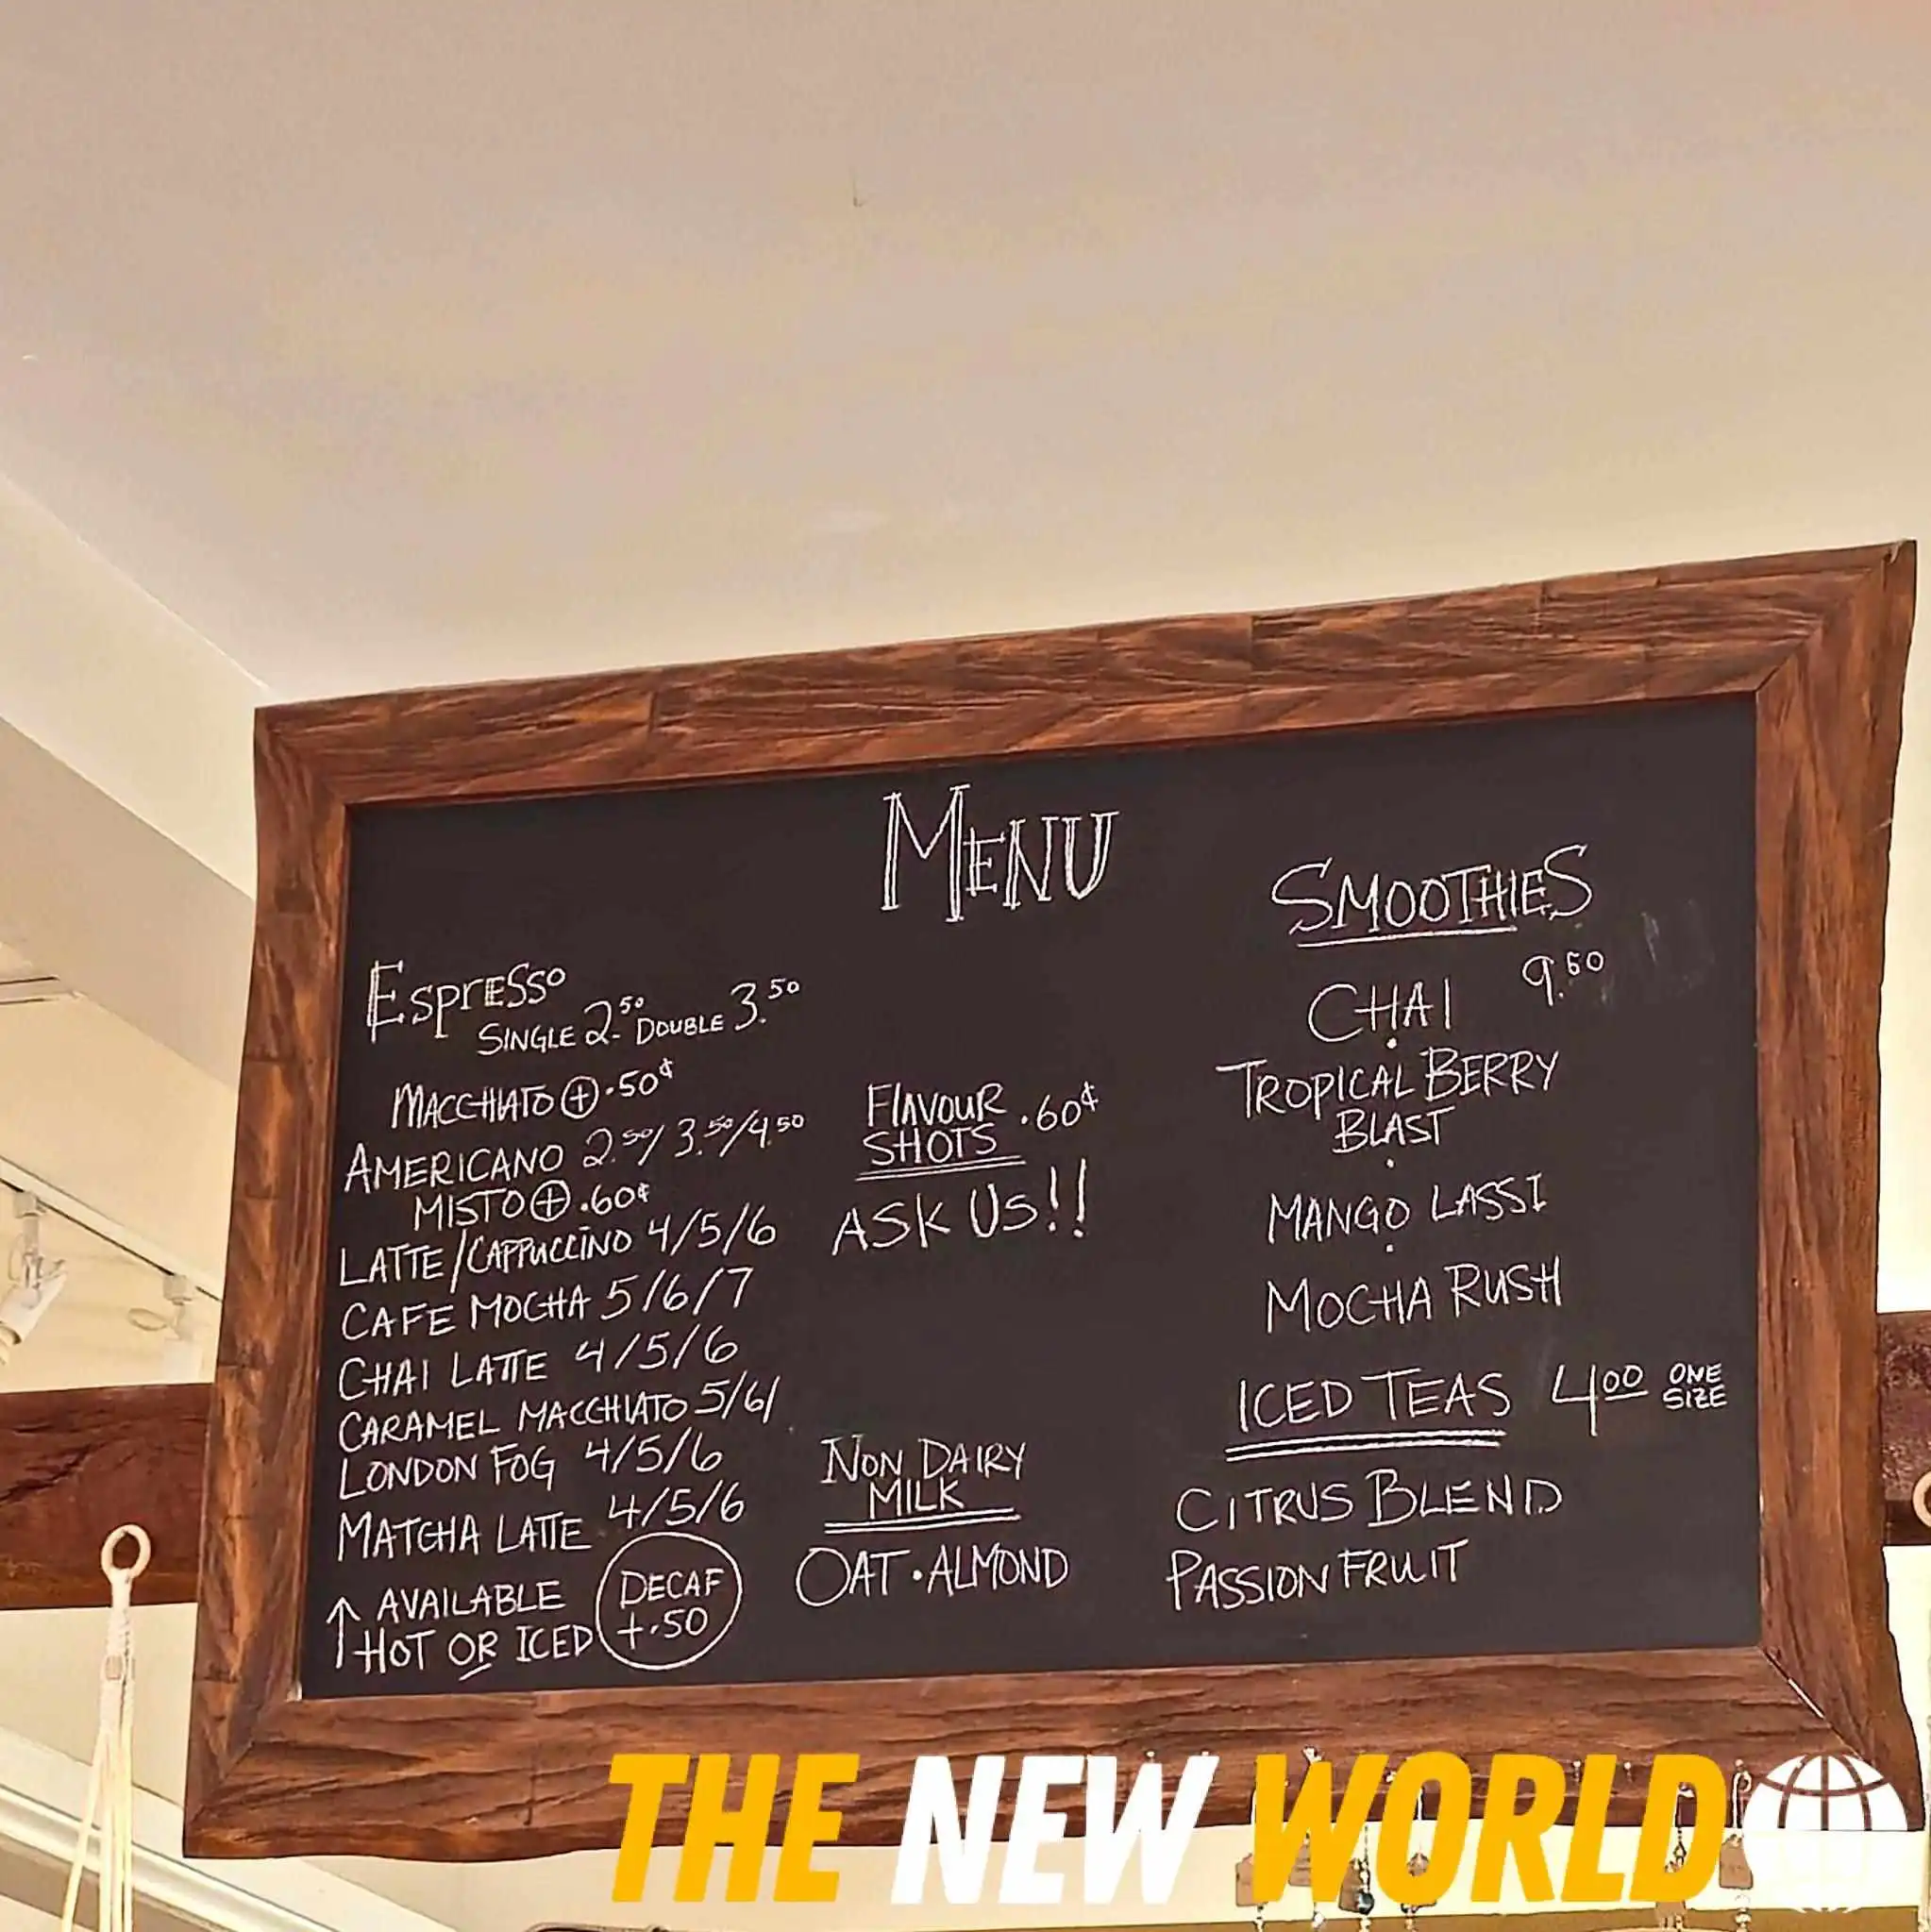 MENU
ESPRESSO
SINGLE 2.50 DOUBLE 3.50
MACCHIATO ⊕ .50¢
AMERICANO 2.50/3.50/4.50
MISTO ⊕ .60¢
LATTE/CAPPUCCINO 4/5/6
CAFE MOCHA 5/6/7
CHAI LATTE 4/5/6
CARAMEL MACCHIATO 5/6/
LONDON FOG 4/5/6
MATCHA LATTE 4/5/6
↑ AVAILABLE
HOT OR ICED
DECAF
+.50
FLAVOUR
SHOTS .60¢
ASK US!!
NON DAIRY
MILK
OAT · ALMOND
SMOOTHIES
9.50
CHAI
TROPICAL BERRY
BLAST
MANGO LASSI
MOCHA RUSH
ICED TEAS 4.00 ONE
SIZE
CITRUS BLEND
PASSION FRUIT
THE NEW WORLD